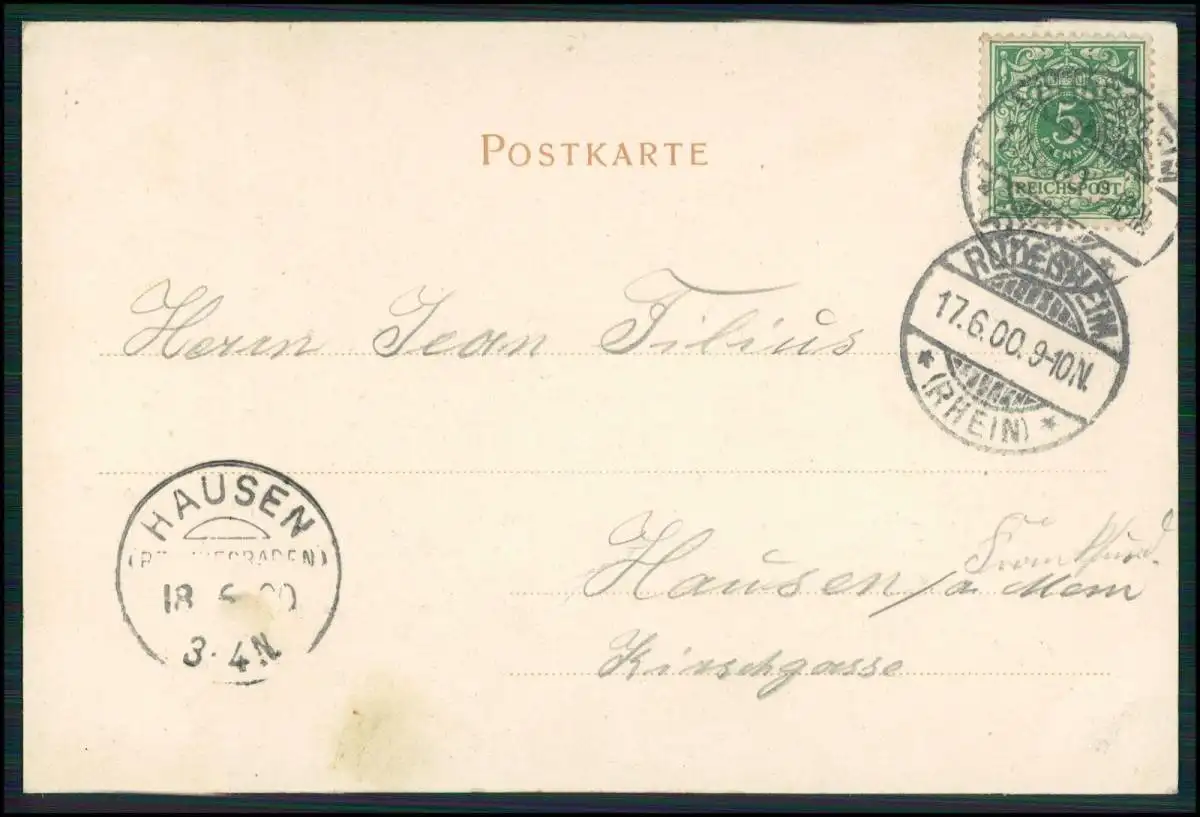 POSTKARTE
5
PFENNIG
REICHSPOST
RÜDESHEIM
17.6.00. 9-10N.
* (RHEIN) *
Herrn Jean Filius
HAUSEN
(BZ. WIESBADEN)
18 6 00
3-4N.
Frankfurt
Hausen / a. Main
Kirschgasse